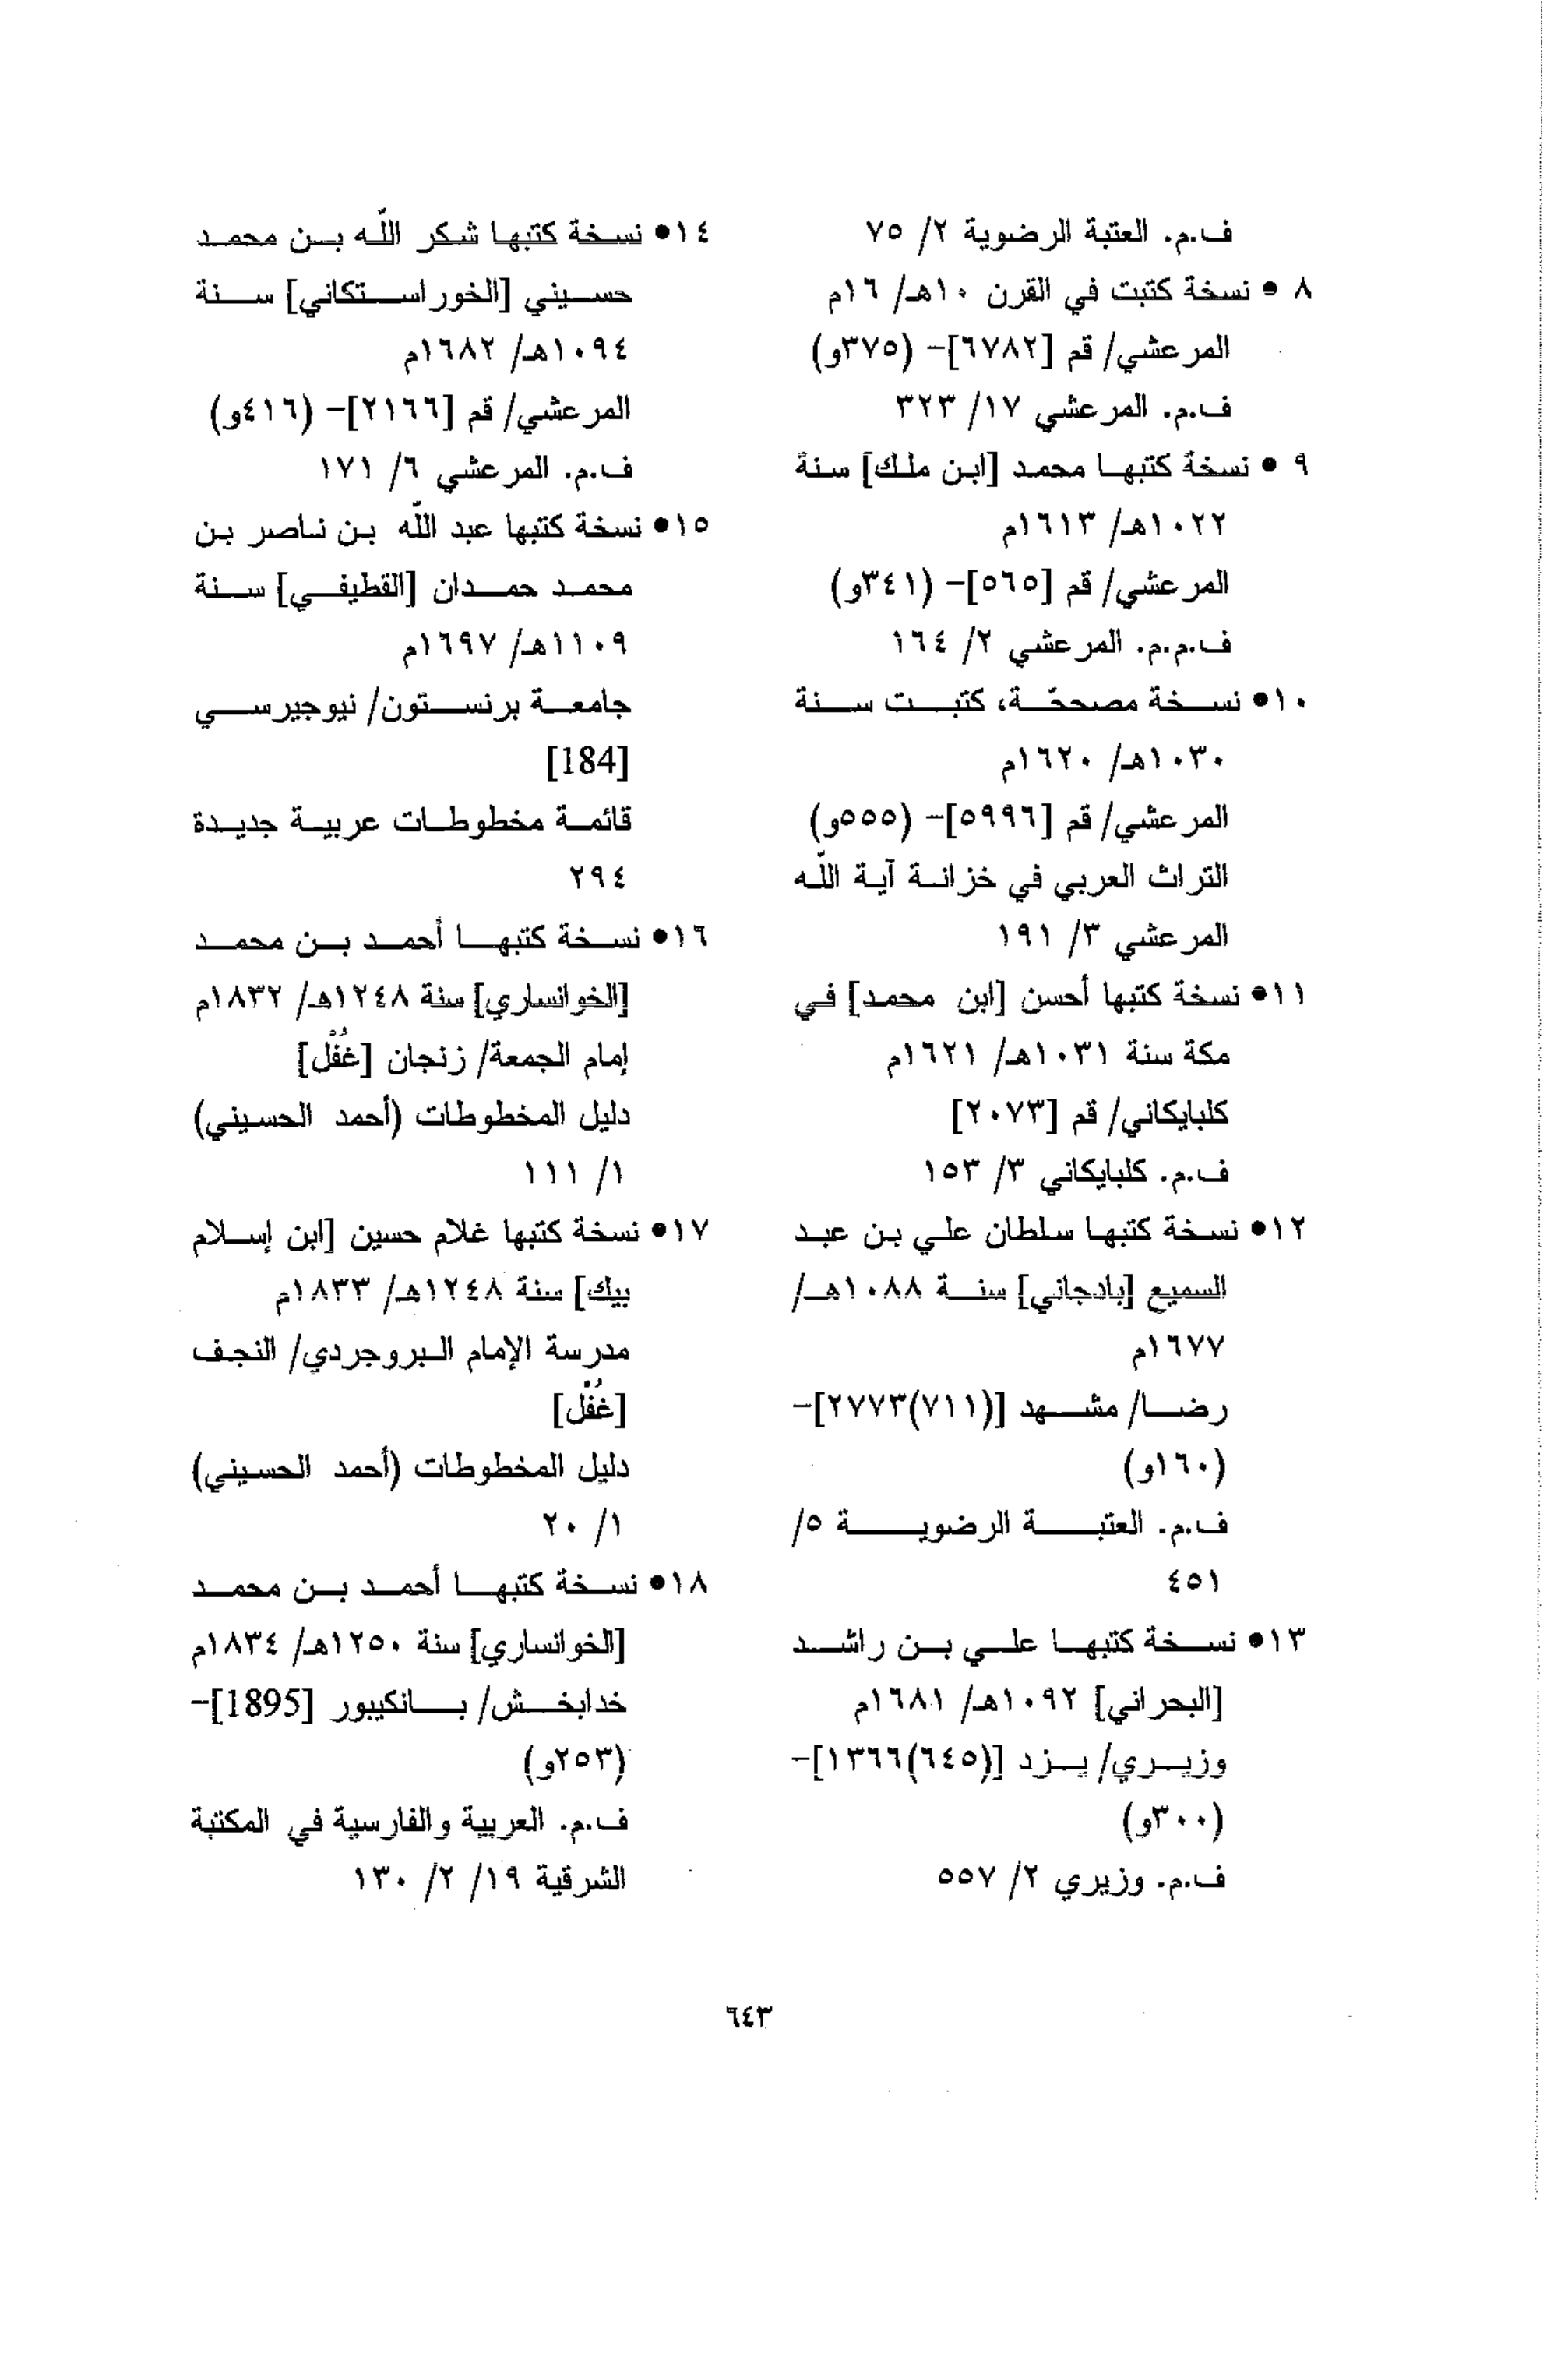 ف.م. العتبة الرضوية ٢/ ٧٥
٨ • نسخة كتبت في القرن ١٠هـ/ ١٦م
المرعشي/ قم [٦٧٨٢]- (٣٧٥و)
ف.م. المرعشي ١٧/ ٣٢٣
٩ • نسخة كتبها محمد [ابن ملك] سنة
١٠٢٢هـ/ ١٦١٣م
المرعشي/ قم [٥٦٥]- (٣٤١و)
ف.م.م. المرعشي ٢/ ١٦٤
١٠• نسخة مصححّة، كتبت سنة
١٠٣٠هـ/ ١٦٢٠م
المرعشي/ قم [٥٩٩٦]- (٥٥٥و)
التراث العربي في خزانة آية اللّه
المرعشي ٣/ ١٩١
١١• نسخة كتبها أحسن [ابن محمد] في
مكة سنة ١٠٣١هـ/ ١٦٢١م
كلبايكاني/ قم [٢٠٧٣]
ف.م. كلبايكاني ٣/ ١٥٣
١٢• نسخة كتبها سلطان علي بن عبد
السميع [بادجاني] سنة ١٠٨٨هـ/
١٦٧٧م
رضا/ مشهد [(٧١١)٢٧٧٣]-
(١٦٠و)
ف.م. العتبة الرضوية ٥/
٤٥١
١٣• نسخة كتبها علي بن راشد
[البحراني] ١٠٩٢هـ/ ١٦٨١م
وزيري/ يزد [(٦٤٥)١٣٦٦]-
(٣٠٠و)
ف.م. وزيري ٢/ ٥٥٧
١٤• نسخة كتبها شكر اللّه بن محمد
حسيني [الخوراستكاني] سنة
١٠٩٤هـ/ ١٦٨٢م
المرعشي/ قم [٢١٦٦]- (٤١٦و)
ف.م. المرعشي ٦/ ١٧١
١٥• نسخة كتبها عبد اللّه بن ناصر بن
محمد حمدان [القطيفي] سنة
١١٠٩هـ/ ١٦٩٧م
جامعة برنستون/ نيوجيرسي
[184]
قائمة مخطوطات عربية جديدة
٢٩٤
١٦• نسخة كتبها أحمد بن محمد
[الخوانساري] سنة ١٢٤٨هـ/ ١٨٣٢م
إمام الجمعة/ زنجان [غُفْل]
دليل المخطوطات (أحمد الحسيني)
١/ ١١١
١٧• نسخة كتبها غلام حسين [ابن إسلام
بيك] سنة ١٢٤٨هـ/ ١٨٣٣م
مدرسة الإمام البروجردي/ النجف
[غُفْل]
دليل المخطوطات (أحمد الحسيني)
١/ ٢٠
١٨• نسخة كتبها أحمد بن محمد
[الخوانساري] سنة ١٢٥٠هـ/ ١٨٣٤م
خدابخش/ بانكيبور [1895]-
(٢٥٣و)
ف.م. العربية والفارسية في المكتبة
الشرقية ١٩/ ٢/ ١٣٠
٦٤٣